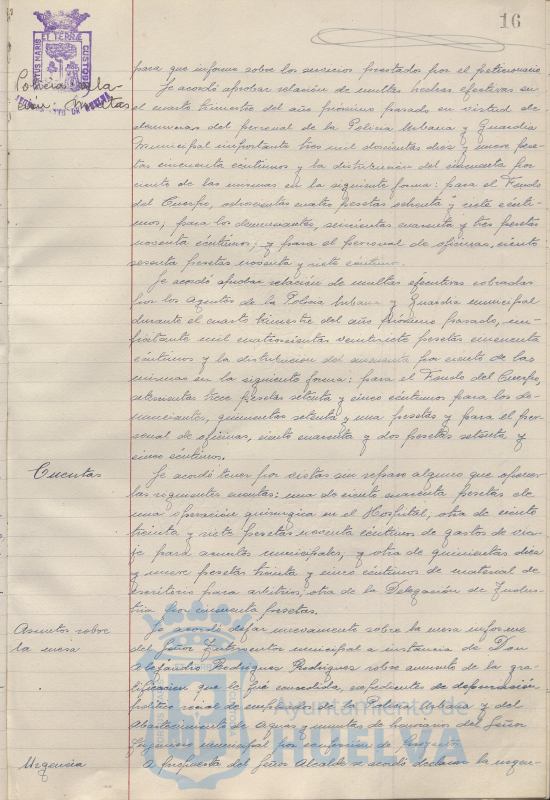 16
para que informe sobre los servicios prestados por el peticionario
Policía. Rela-
ción. Multas
Se acordó aprobar relación de multas hechas efectivas en
el cuarto trimestre del año próximo pasado en virtud de
denuncias del personal de la Policia Urbana y Guardia
Municipal importante tres mil doscientas diez y nueve pese-
tas cincuenta céntimos y la distribución del cincuenta por
ciento de las mismas en la siguiente forma: para el Fondo
del Cuerpo, ochocientas cuatro pesetas ochenta y siete cénti-
mos; para los denunciantes, seiscientas cuarenta y tres pesetas
noventa céntimos; y para el personal de oficinas, ciento
sesenta pesetas noventa y siete céntimos.
Se acordó aprobar relación de multas ejecutivas cobradas
por los Agentes de la Policia Urbana y Guardia municipal
durante el cuarto trimestre del año próximo pasado, im-
portante mil cuatrocientas veintisiete pesetas cincuenta
céntimos y la distribucion del cincuenta por ciento de las
mismas en la siguiente forma: para el Fondo del Cuerpo,
setecientas trece pesetas setenta y cinco céntimos para los de-
nunciantes, quinientas setenta y una pesetas y para el per-
sonal de oficinas, ciento cuarenta y dos pesetas setenta y
cinco céntimos.
Cuentas
Se acordó tener por vistas sin reparo alguno que oponer
las siguientes cuentas: una de ciento cuarenta pesetas de
una operación quirurgica en el Hospital, otra de ciento
treinta y siete pesetas noventa céntimos de gastos de via-
je para asuntos municipales, y otra de quinientas diez
y nueve pesetas treinta y cinco céntimos de material de
escritorio para arbitrios, otra de la Delegación de Indus-
tria por cincuenta pesetas.
Asuntos sobre
la mesa
Se acordó dejar nuevamente sobre la mesa informe
del Señor Interventor municipal a instancia de Don
Alejandro Rodriguez Rodriguez sobre aumento de la gra-
tificacion que le fué concedida, expedientes de depuración
político social de empleados de la Policia Urbana y del
Abastecimiento de Aguas y minuta de honorarios del Señor
Ingeniero municipal por confección de proyecto.
Urgencia
A propuesta del Señor Alcalde se acordó declarar la urgen-
Ayuntamiento de
HUELVA